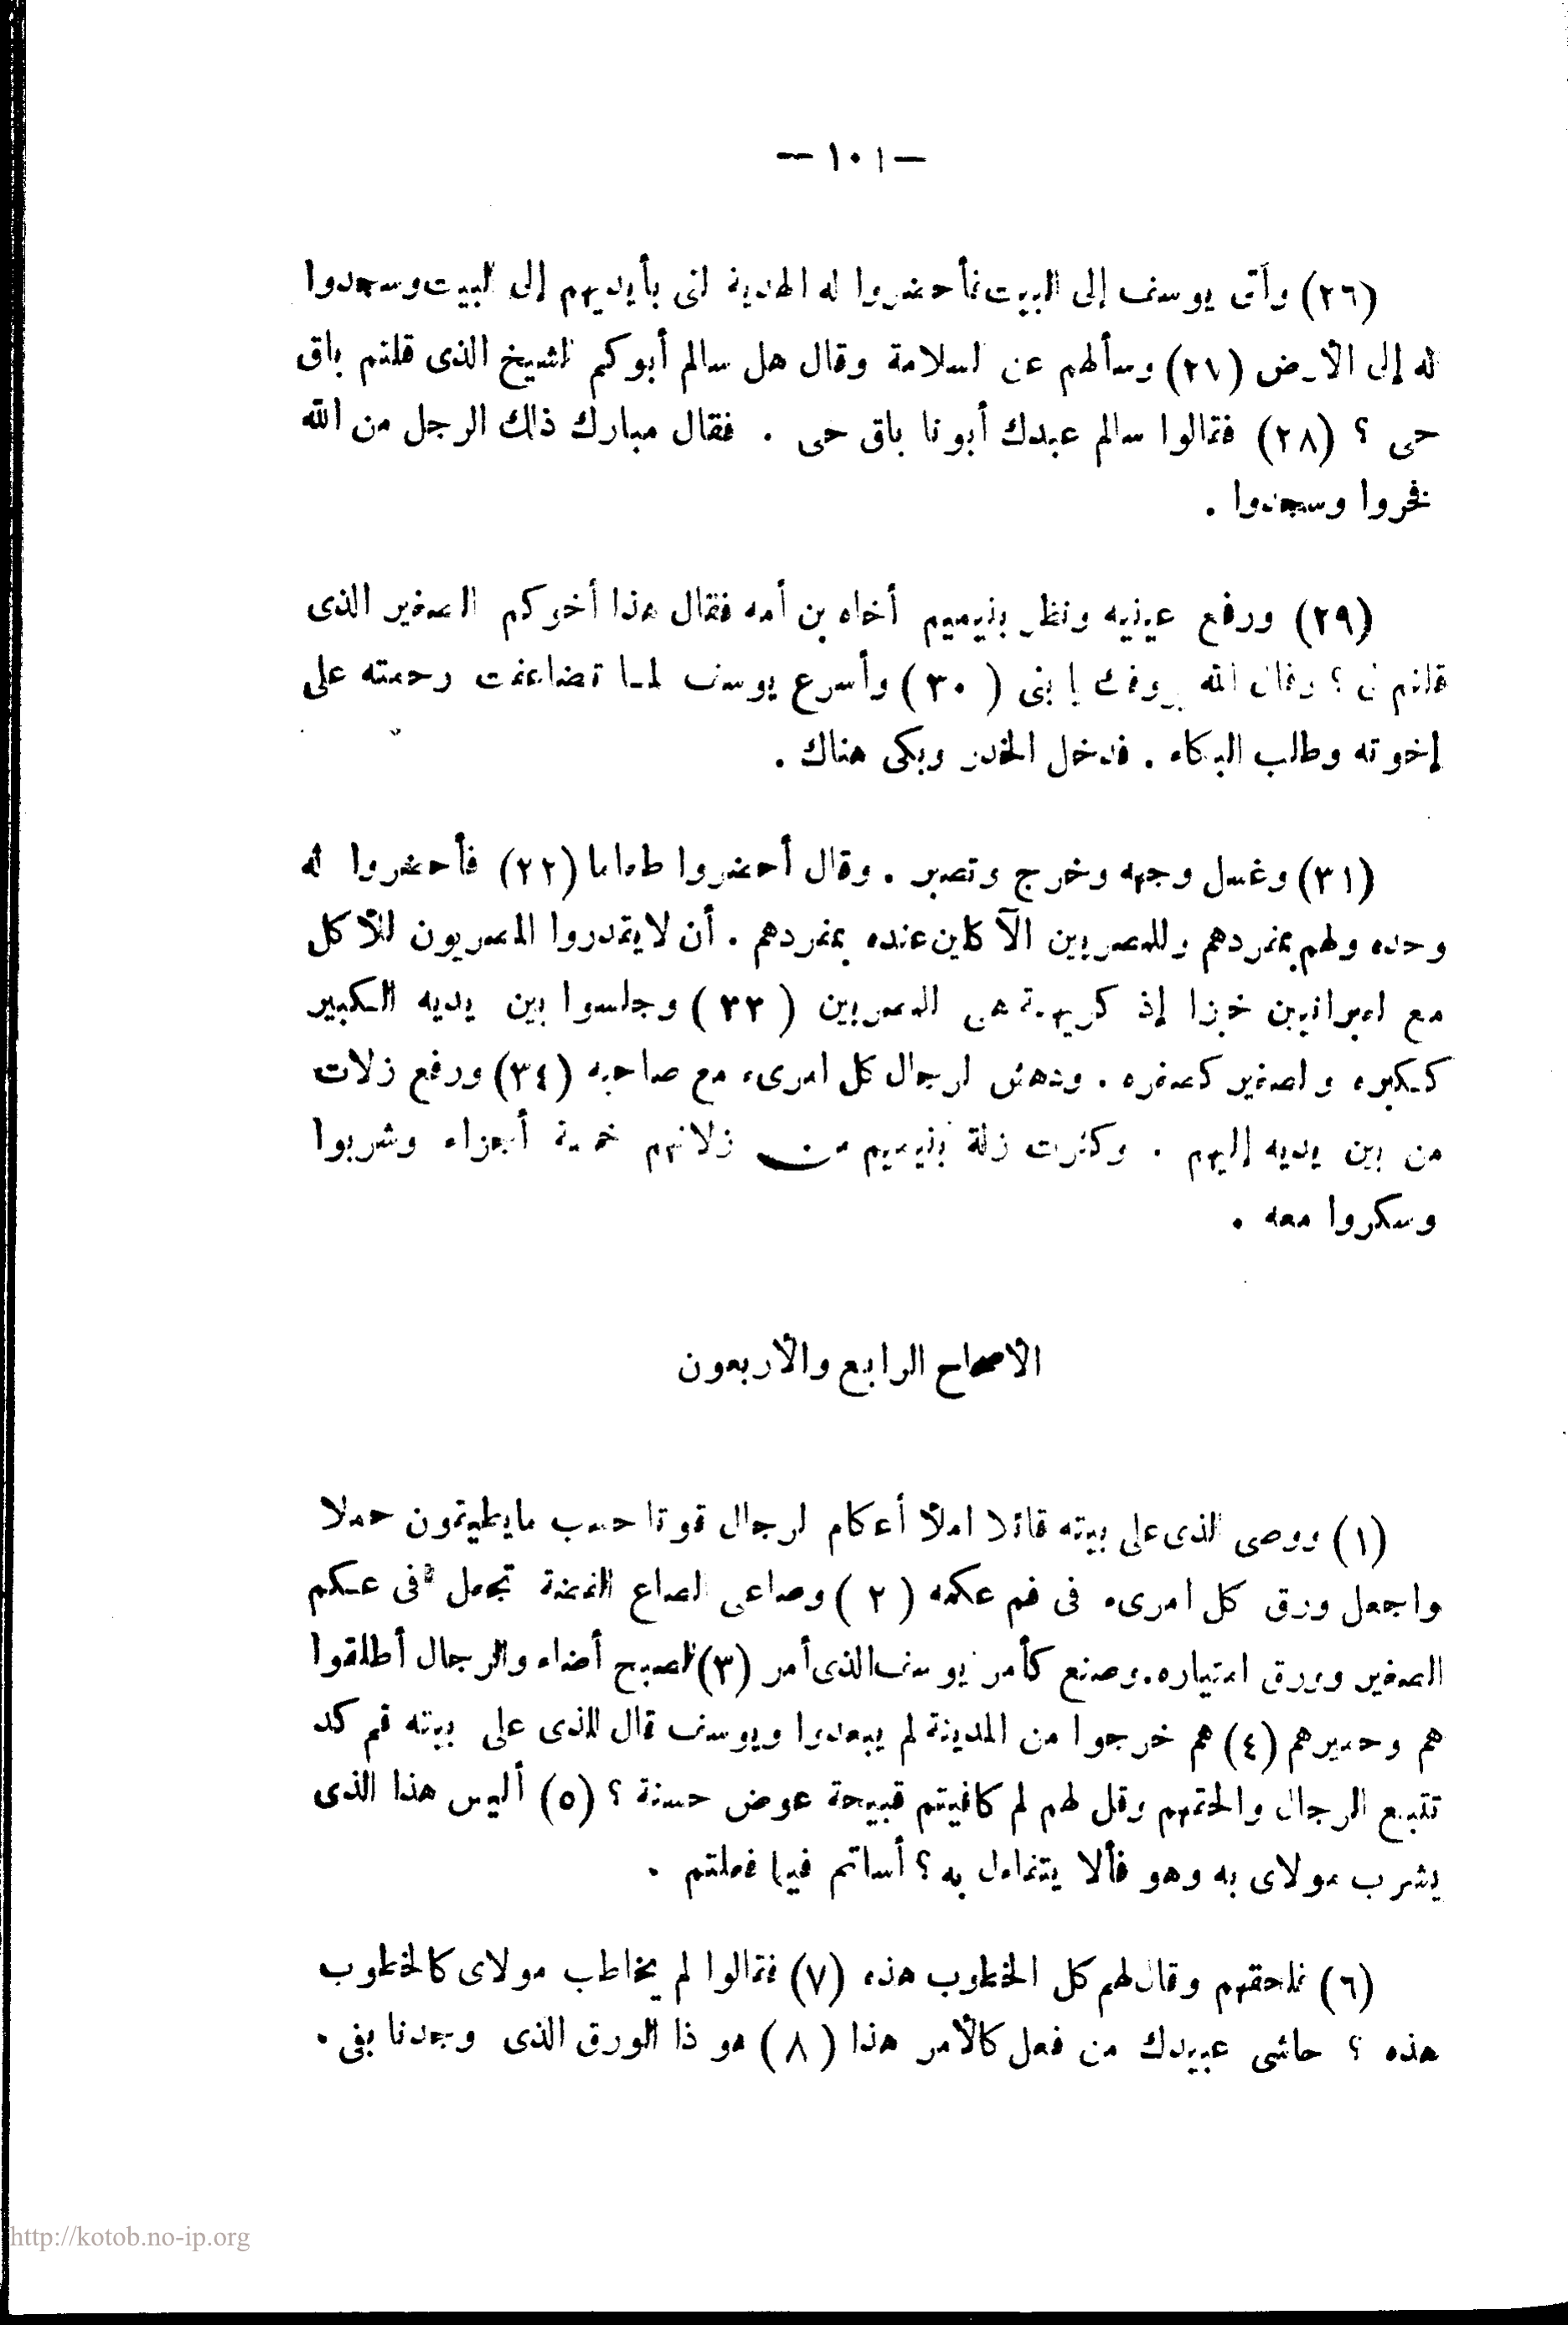 — ١٠١ —
(٢٦) وأتى يوسف إلى البيت فأحضروا له الهدية التى بأيديهم إلى البيت وسجدوا
له إلى الأرض (٢٧) وسألهم عن السلامة وقال هل سالم أبوكم الشيخ الذى قلتم باق
حى ؟ (٢٨) فقالوا سالم عبدك أبونا باق حى . فقال مبارك ذلك الرجل من الله
فخروا وسجدوا .
(٢٩) ورفع عينيه ونظر بنيميم أخاه بن أمه فقال هذا أخوكم الصغير الذى
قلتم لى ؟ وقال الله يروفك يا بنى (٣٠) وأسرع يوسف لما تضاعفت رحمته على
إخوته وطلب البكاء . فدخل الخدر وبكى هناك .
(٣١) وغسل وجهه وخرج وتصبر . وقال أحضروا طعاما (٣٢) فأحضروا له
وحده ولهم بمفردهم وللمصريين الآكلين عنده بمفردهم . أن لا يقدروا المصريون للأكل
مع العبرانيين خبزا إذ كريهة هى للمصريين (٣٣) وجلسوا بين يديه الكبير
ككبره والصغير كصغره . ودهش الرجال كل امرىء مع صاحبه (٣٤) ورفع زلات
من بين يديه إليهم . وكثرت زلة بنيميم من زلاتهم خمسة أجزاء وشربوا
وسكروا معه .
الأصحاح الرابع والأربعون
(١) ووصى الذى على بيته قائلا املأ أعكام الرجال قوتا حسب ما يطيقون حملا
واجعل ورق كل امرىء فى فم عكمه (٢) وصاعى الصاع الفضة تجعل فى عكم
الصغير وورق امتياره. وصنع كأمر يوسف الذى أمر (٣) الصبح أضاء والرجال أطلقوا
هم وحميرهم (٤) هم خرجوا من المدينة لم يبعدوا ويوسف قال للذى على بيته قم كد
تتبع الرجال والحقهم وقل لهم لم كافيتم قبيحة عوض حسنة ؟ (٥) أليس هذا الذى
يشرب مولاى به وهو فألا يتفاءل به ؟ أسأتم فيما فعلتم .
(٦) فلحقهم وقال لهم كل الخطوب هذه (٧) فقالوا لم يخاطب مولاى كالخطوب
هذه ؟ حاشى عبيدك من فعل كالأمر هذا (٨) هو ذا الورق الذى وجدنا بفى .
http://kotob.no-ip.org